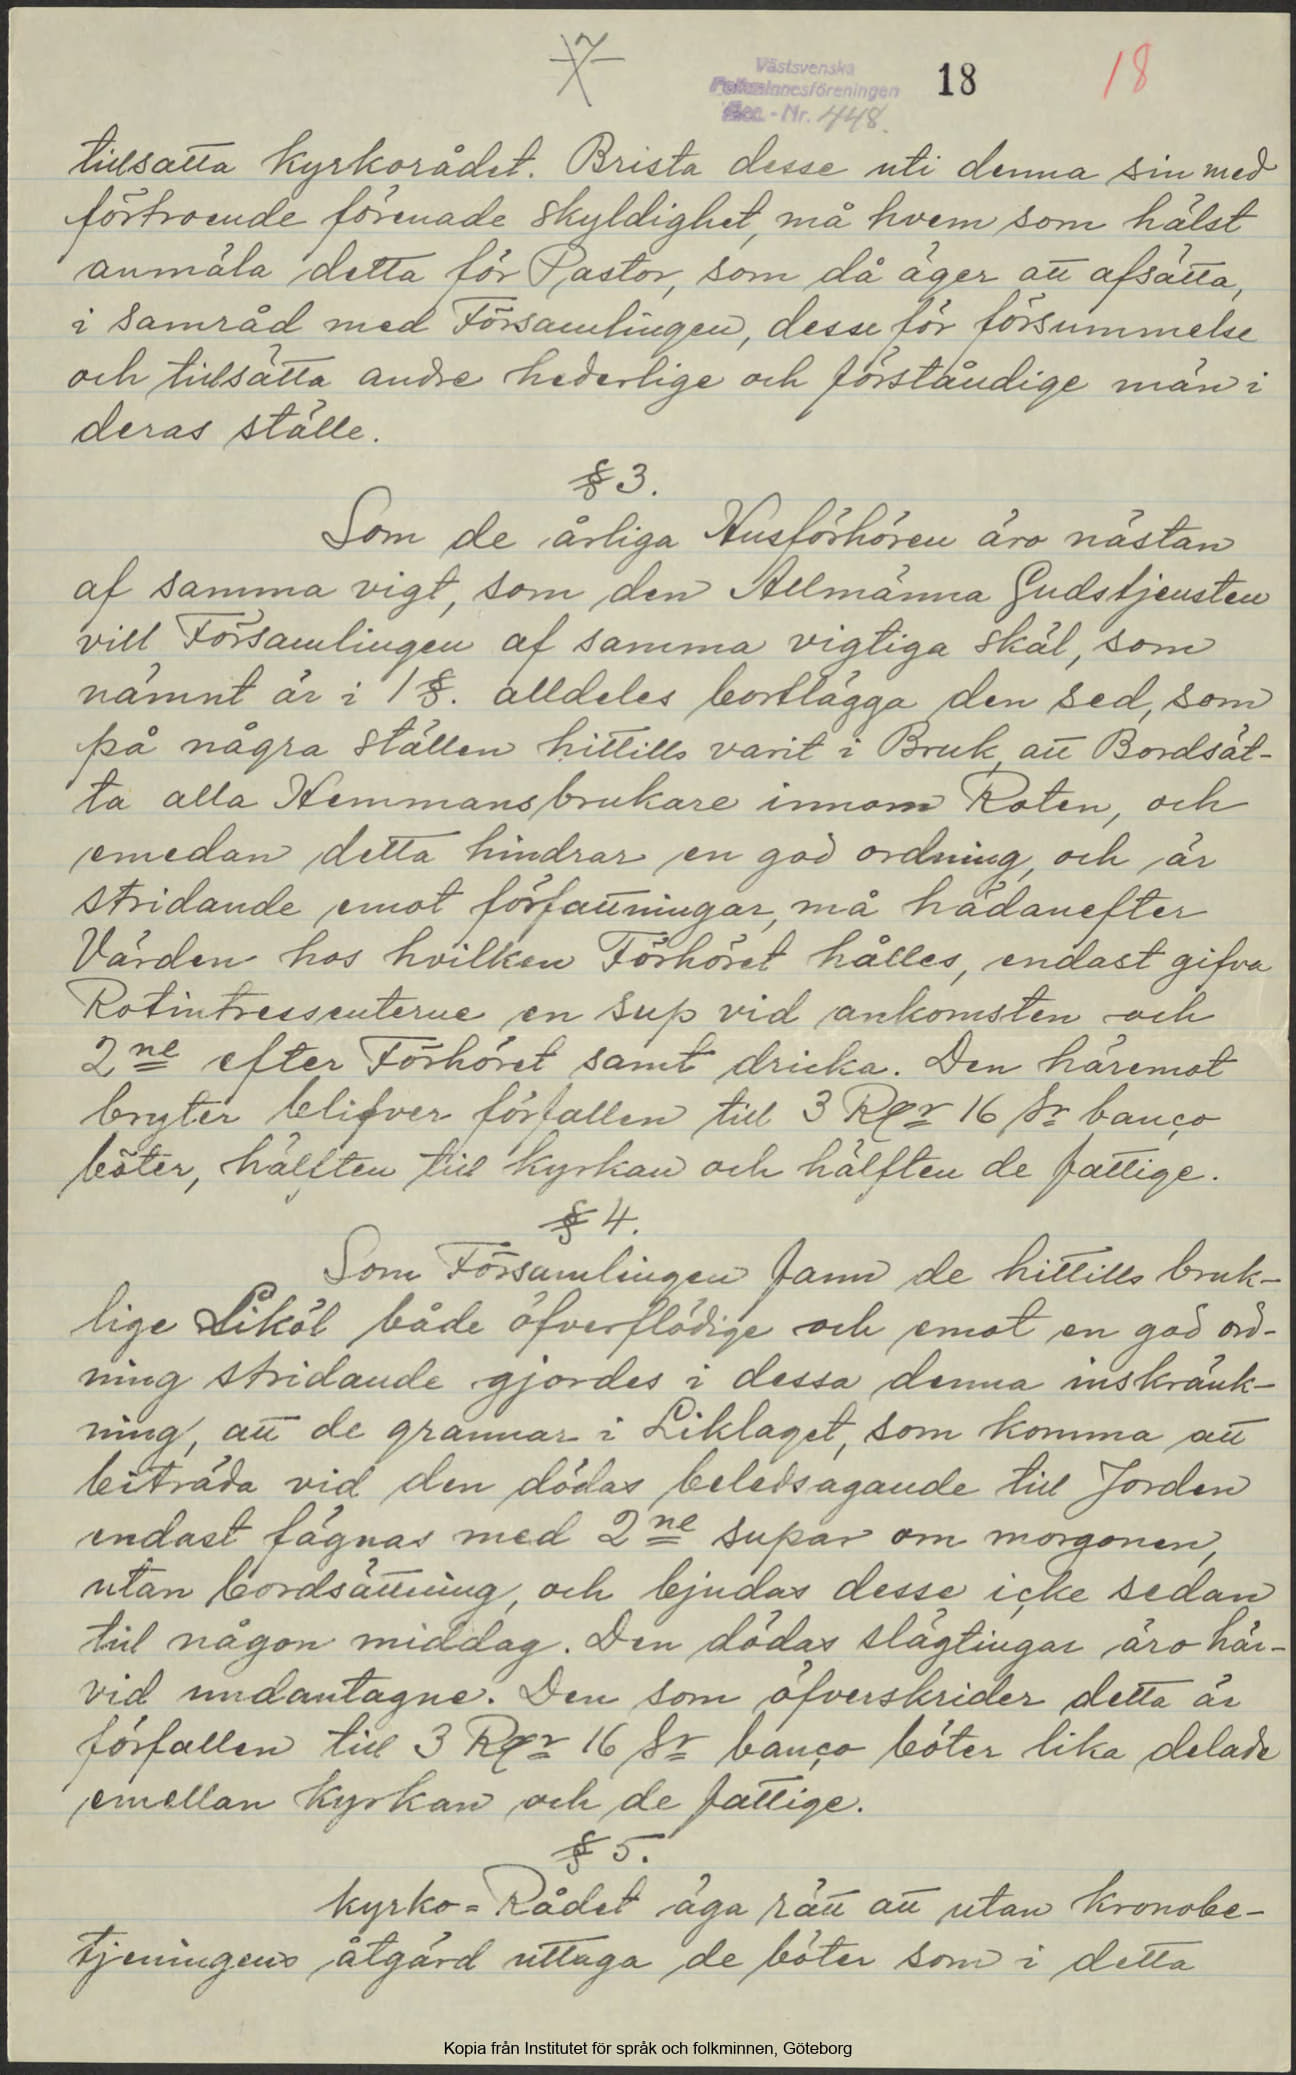 7
Västsvenska
Folkminnesföreningen
Acc. - Nr. 448.
18
18
tillsatta kyrkorådet. Brista desse uti denna sin med
förtroende förenade skyldighet, må hvem som hälst
anmäla detta för Pastor, som då äger att afsätta,
i samråd med Församlingen, desse för försummelse
och tillsätta andre hederlige och förståndige män i
deras ställe.
§ 3.
Som de årliga Husförhören äro nästan
af samma vigt, som den Allmänna Gudstjensten
vill Församlingen af samma vigtiga skäl, som
nämnt är i 1 §. alldeles bortlägga den sed, som
på några ställen hittills varit i Bruk, att Bordsät-
ta alla Hemmansbrukare innom Roten, och
emedan detta hindrar en god ordning, och är
stridande emot författningar, må hädanefter
Värden hos hvilken Förhöret hålles, endast gifva
Rotintressenterne en sup vid ankomsten och
2ne efter Förhöret samt dricka. Den häremot
bryter blifver förfallen till 3 Rdr 16 sr banco
böter, hälften till kyrkan och hälften de fattige.
§ 4.
Som Församlingen fann de hittills bruk-
lige Liköl både öfverflödige och emot en god ord-
ning stridande gjordes i dessa denna inskränk-
ning, att de grannar i Liklaget, som komma att
biträda vid den dödas beledsagande till Jorden
endast fägnas med 2ne supar om morgonen,
utan bordsättning, och bjudas desse icke sedan
till någon middag. Den dödas slägtingar äro här-
vid undantagne. Den som öfverskrider detta är
förfallen till 3 Rdr 16 sr banco böter lika delade
emellan kyrkan och de fattige.
§ 5.
Kyrko=Rådet äga rätt att utan kronobe-
tjeningens åtgärd uttaga de böter som i detta
Kopia från Institutet för språk och folkminnen, Göteborg